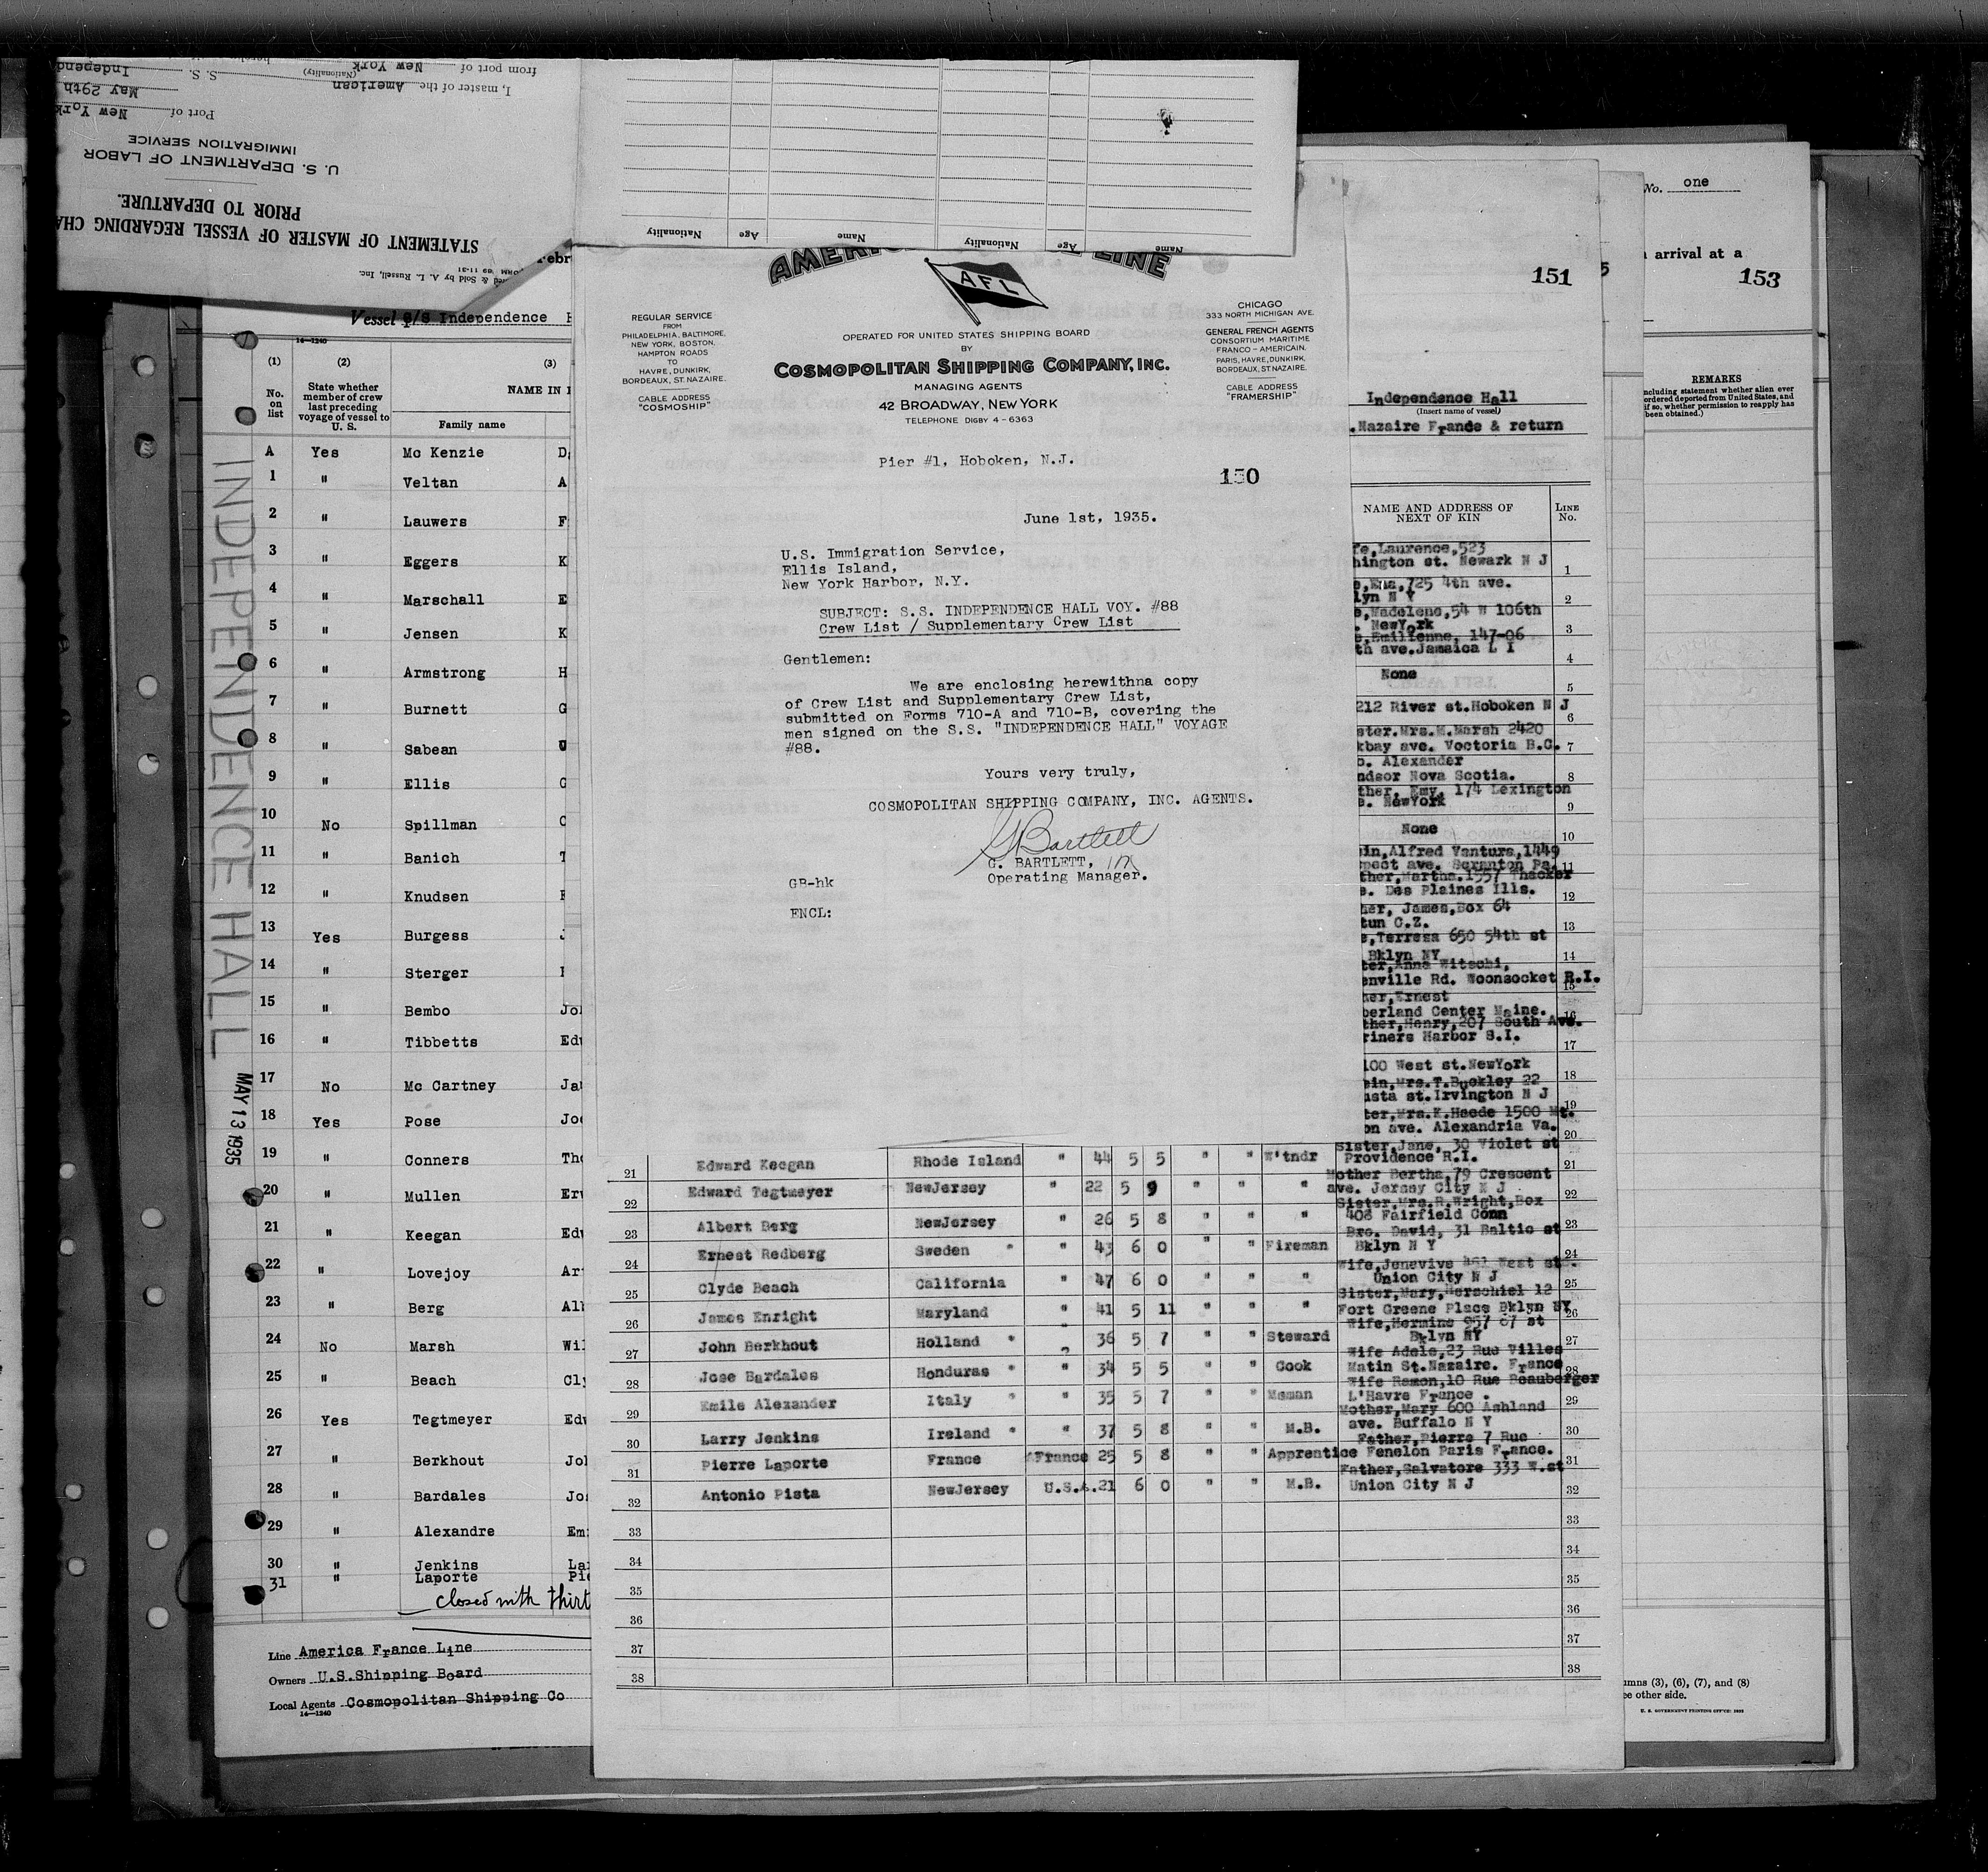 from port of New York
(Nationality)
S. S. Independ
I, master of the American
May 29th
Port of New York
IMMIGRATION SERVICE
U. S. DEPARTMENT OF LABOR
PRIOR TO DEPARTURE.
STATEMENT OF MASTER OF VESSEL REGARDING CHA
& Sold by A. L. Russell, Inc.
Nationality Age Name Nationality Age Name
Vessel S/S Independence H
14—1240
(1) (2) (3)
No. on list
State whether member of crew last preceding voyage of vessel to U. S.
NAME IN
Family name
A Yes Mc Kenzie D
1 " Veltan A
2 " Lauwers F
3 " Eggers K
4 " Marschall E
5 " Jensen K
6 " Armstrong H
7 " Burnett G
8 " Sabean
9 " Ellis
10 No Spillman
11 " Banich
12 " Knudsen
13 Yes Burgess
14 " Sterger
15 " Bembo
16 " Tibbetts
17 No Mc Cartney
18 Yes Pose
19 " Conners
20 " Mullen
21 " Keegan
22 " Lovejoy
23 " Berg
24 No Marsh
25 " Beach
26 Yes Tegtmeyer
27 " Berkhout
28 " Bardales
29 " Alexandre
30 " Jenkins
31 " Laporte
closed with thirt
INDEPENDENCE HALL
MAY 13 1935
Line America France Line
Owners U.S.Shipping Board
Local Agents Cosmopolitan Shipping Co
14—1240
LINE
AFL
REGULAR SERVICE
FROM
PHILADELPHIA, BALTIMORE,
NEW YORK, BOSTON,
HAMPTON ROADS
TO
HAVRE, DUNKIRK,
BORDEAUX, ST. NAZAIRE.
CABLE ADDRESS
"COSMOSHIP"
OPERATED FOR UNITED STATES SHIPPING BOARD
BY
COSMOPOLITAN SHIPPING COMPANY, INC.
MANAGING AGENTS
42 BROADWAY, NEW YORK
TELEPHONE DIGBY 4-6363
CHICAGO
333 NORTH MICHIGAN AVE.
GENERAL FRENCH AGENTS
CONSORTIUM MARITIME
FRANCO-AMERICAIN.
PARIS, HAVRE, DUNKIRK,
BORDEAUX, ST. NAZAIRE.
CABLE ADDRESS
"FRAMERSHIP"
Pier #1, Hoboken, N.J.
150
June 1st, 1935.
U.S. Immigration Service,
Ellis Island,
New York Harbor, N.Y.
SUBJECT: S.S. INDEPENDENCE HALL VOY. #88
Crew List / Supplementary Crew List
Gentlemen:
We are enclosing herewithna copy
of Crew List and Supplementary Crew List,
submitted on Forms 710-A and 710-B, covering the
men signed on the S.S. "INDEPENDENCE HALL" VOYAGE
#88.
Yours very truly,
COSMOPOLITAN SHIPPING COMPANY, INC. AGENTS.
G Bartlett
G. BARTLETT,
Operating Manager.
GB-hk
ENCL:
151
Independence Hall
(Insert name of vessel)
.Nazaire France & return
NAME AND ADDRESS OF NEXT OF KIN
LINE No.
fe,Laurence,523
hington st. Newark N J 1
e,Ema,725 4th ave.
lyn N Y 2
e,Madelene,54 W 106th
. NewYork 3
e,Emilienne, 147-06
th ave.Jamaica L I 4
None 5
212 River st.Hoboken N J 6
ster.Mrs.M.Marsh 2420
kbay ave. Voctoria B.C. 7
o. Alexander
ndsor Nova Scotia. 8
ther, Emy, 174 Lexington
e. NewYork 9
None 10
in,Alfred Ventura,1449
pect ave. Scranton Pa. 11
ther,Martha.1557 Thacker
e. Des Plaines Ills. 12
her, James,Box 64
tun C.Z. 13
e,Terresa 650 54th st
Bklyn NY 14
ter,Anna Witschi,
enville Rd. Woonsocket R.I. 15
her,Ernest
berland Center Maine. 16
ther,Henry,207 South Ave.
riners Harbor S.I. 17
100 West st.NewYork 18
ein,Mrs.T.Buckley 22
usta st.Irvington N J 19
ter,Mrs.K.Heede 1500 Mt.
on ave. Alexandria Va. 20
21 Edward Keegan Rhode Island " 44 5 5 " " W'tndr Sister,Jane, 30 Violet st Providence R.I. 21
22 Edward Tegtmeyer NewJersey " 22 5 9 " " " Mother Bertha,79 Crescent ave. Jersey City N J 22
23 Albert Berg NewJersey " 26 5 8 " " " Sister,Mrs.R.Wright,Box 408 Fairfield Conn 23
24 Ernest Redberg Sweden " " 43 6 0 " " Fireman Bro. David, 31 Baltic st Bklyn N Y 24
25 Clyde Beach California " 47 6 0 " " " Wife,Jenevive 461 West st. Union City N J 25
26 James Enright Maryland " 41 5 11 " " " Sister,Mary,Herschiel 12 Fort Greene Place Bklyn NY 26
27 John Berkhout Holland " 36 5 7 " " Steward Wife,Hermine 957 67 st Bklyn NY 27
28 Jose Bardales Honduras " " 34 5 5 " " Cook Wife Adele,23 Rue Villes Matin St.Nazaire. France 28
29 Emile Alexander Italy " " 35 5 7 " " Msman Wife Ramon,10 Rue Beauberger L'Havre France . 29
30 Larry Jenkins Ireland " " 37 5 8 " " M.B. Mother,Mary 600 Ashland ave. Buffalo N Y 30
31 Pierre Laporte France France 25 5 8 " " Apprentice Father,Pierre 7 Rue Fenelon Paris France. 31
32 Antonio Pista NewJersey U.S.A. 21 6 0 " " M.B. Father,Salvatore 333 W.st Union City N J 32
33 33
34 34
35 35
36 36
37 37
38 38
No. one
arrival at a
153
REMARKS
ncluding statement whether alien ever
ordered deported from United States, and
if so, whether permission to reapply has
been obtained.)
umns (3), (6), (7), and (8)
ee other side.
U. S. GOVERNMENT PRINTING OFFICE